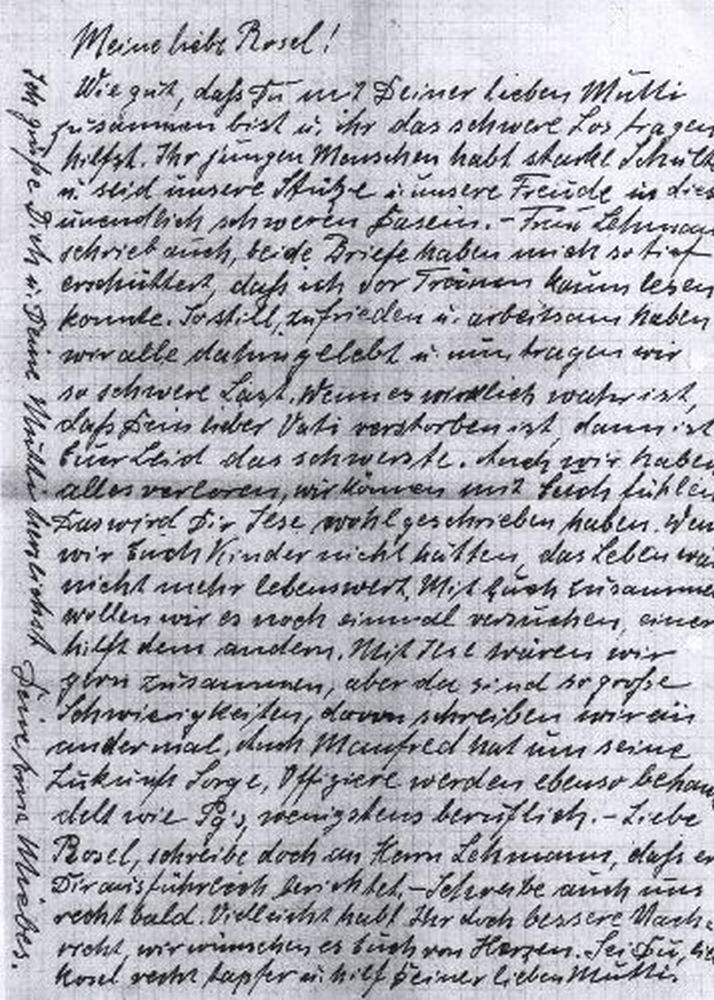 Meine liebe Rosel!
Wie gut, daß Du mit Deiner lieben Mutti
zusammen bist u. ihr das schwere Los tragen
hilfst. Ihr jungen Menschen habt starke Schult
u. seid unsere Stütze u. unsere Freude in dies
unendlich schweren Dasein. - Frau Lehmann
schrieb auch, beide Briefe haben mich so tief
erschüttert, daß ich vor Tränen kaum lesen
konnte. So still, zufrieden u. arbeitsam haben
wir alle dahingelebt u. nun tragen wir
so schwere Last. Wenn es wirklich wahr ist,
daß Dein lieber Vati verstorben ist, dann ist
Euer Leid das schwerste. Auch wir haben
alles verloren, wir können mit Euch fühlen
Das wird Dir Ilse wohl geschrieben haben. Wen
wir Euch Kinder nicht hätten, das Leben wä
nicht mehr lebenswert. Mit Euch zusamme
wollen wir es noch einmal versuchen, einer
hilft dem andern. Mit Ilse wären wir
gern zusammen, aber da sind so große
Schwierigkeiten, davon schreiben wir ein
andermal. Auch Manfred hat um seine
Zukunft Sorge, Offiziere werden ebenso behan
delt wie Pg's, wenigstens beruflich. - Liebe
Rosel, schreibe doch an Herrn Lehmann, daß er
Dir ausführlich berichtet. - Schreibe auch uns
recht bald. Vielleicht habt Ihr doch bessere Nach-
richt, wir wünschen es Euch von Herzen. Sei Du, lie
Rosel recht tapfer u. hilf Deiner lieben Mutti.
Ich grüße Dich u. Deine Mutti herzlichst Deine